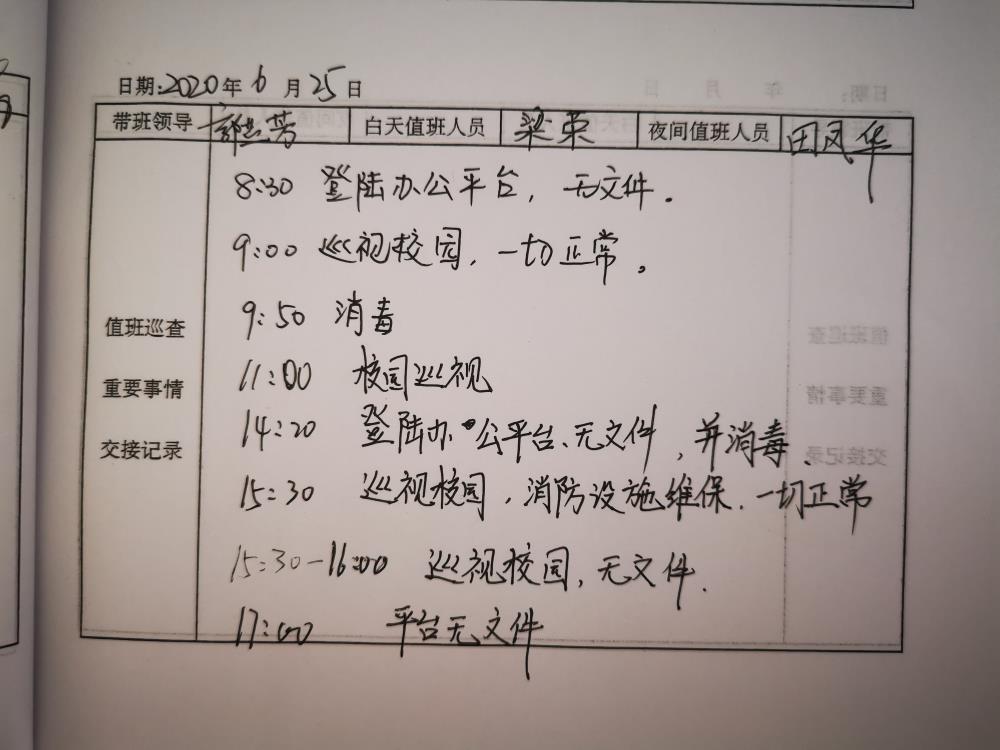 日期:2020年6月25日
带班领导 郭兰芳 白天值班人员 梁东 夜间值班人员 田凤华
8:30 登陆办公平台，无文件.
9:00 巡视校园，一切正常。
值班巡查
重要事情
交接记录
9:50 消毒
11:00 校园巡视
14:20 登陆办公平台、无文件，并消毒.
15:30 巡视校园，消防设施维保.一切正常
15:30-16:00 巡视校园，无文件.
17:00 平台无文件